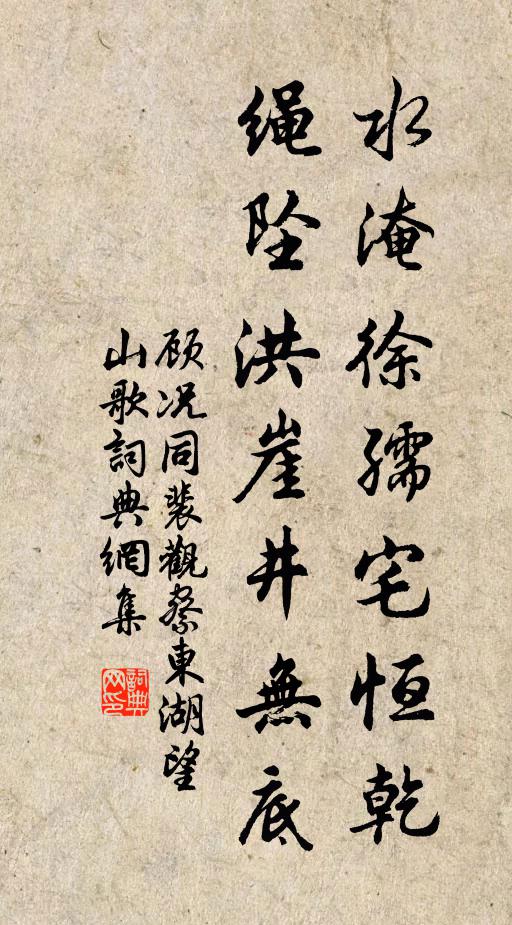 水淹徐孺宅恒乾
绳坠洪崖井無底
顾况同裴觀察東湖望
山歌詞典網集
詞典
网印